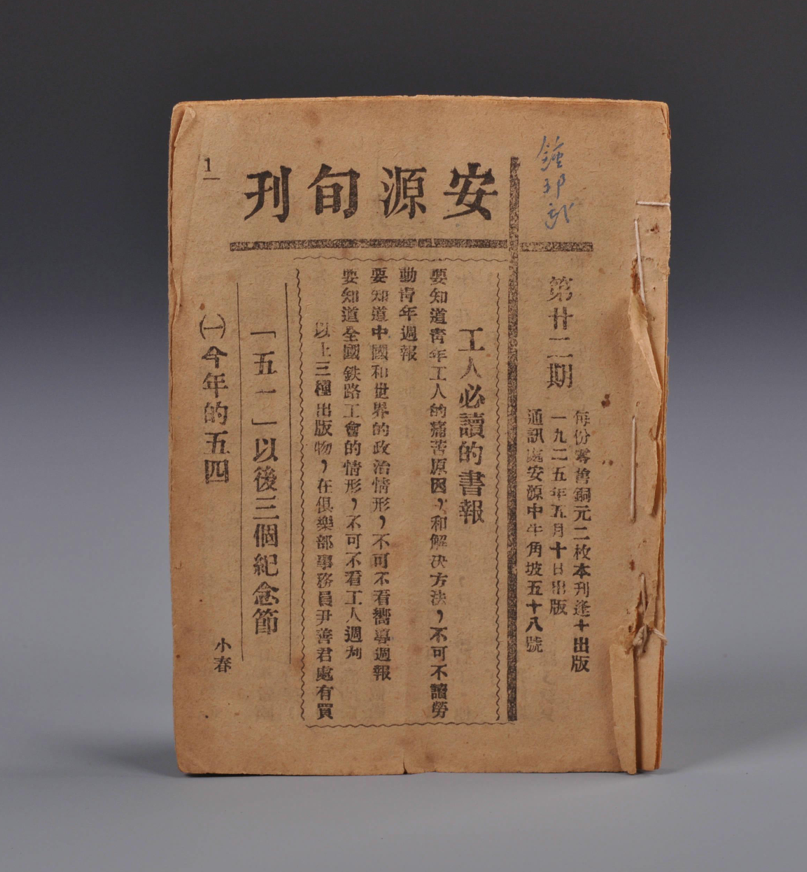 安源旬刊
第廿二期
每份零售銅元二枚本刊逢十出版
一九二五年五月十日出版
通訊處安源中牛角坡五十八號
工人必讀的書報
要知道青年工人的痛苦原因，和解決方法，不可不讀勞
動青年週報
要知道中國和世界的政治情形，不可不看嚮導週報
要知道全國鉄路工會的情形，不可不看工人週刋
以上三種出版物，在俱樂部事務員尹善君處有買
「五一」以後三個紀念節
小春
㈠今年的五四
1